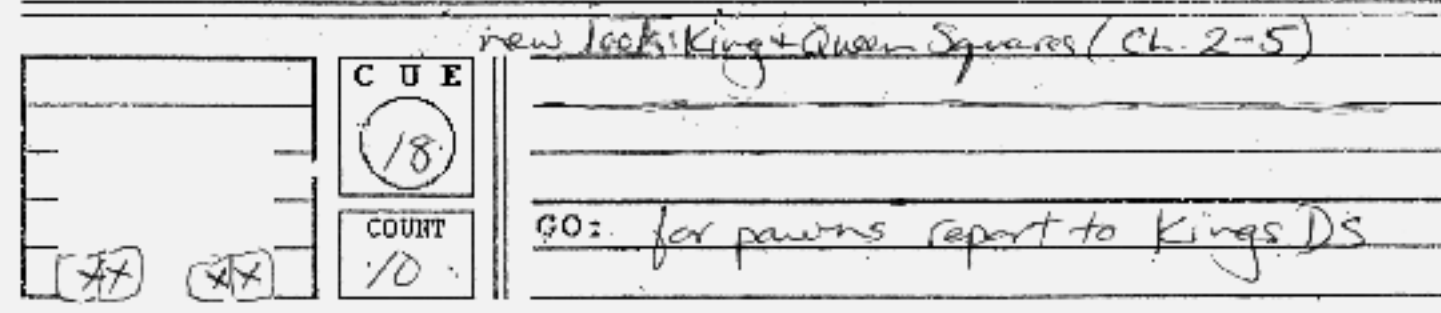 new look: King + Queen Squares (Ch. 2-5)
CUE
18
COUNT
10
GO: for pawns report to Kings DS
XX XX